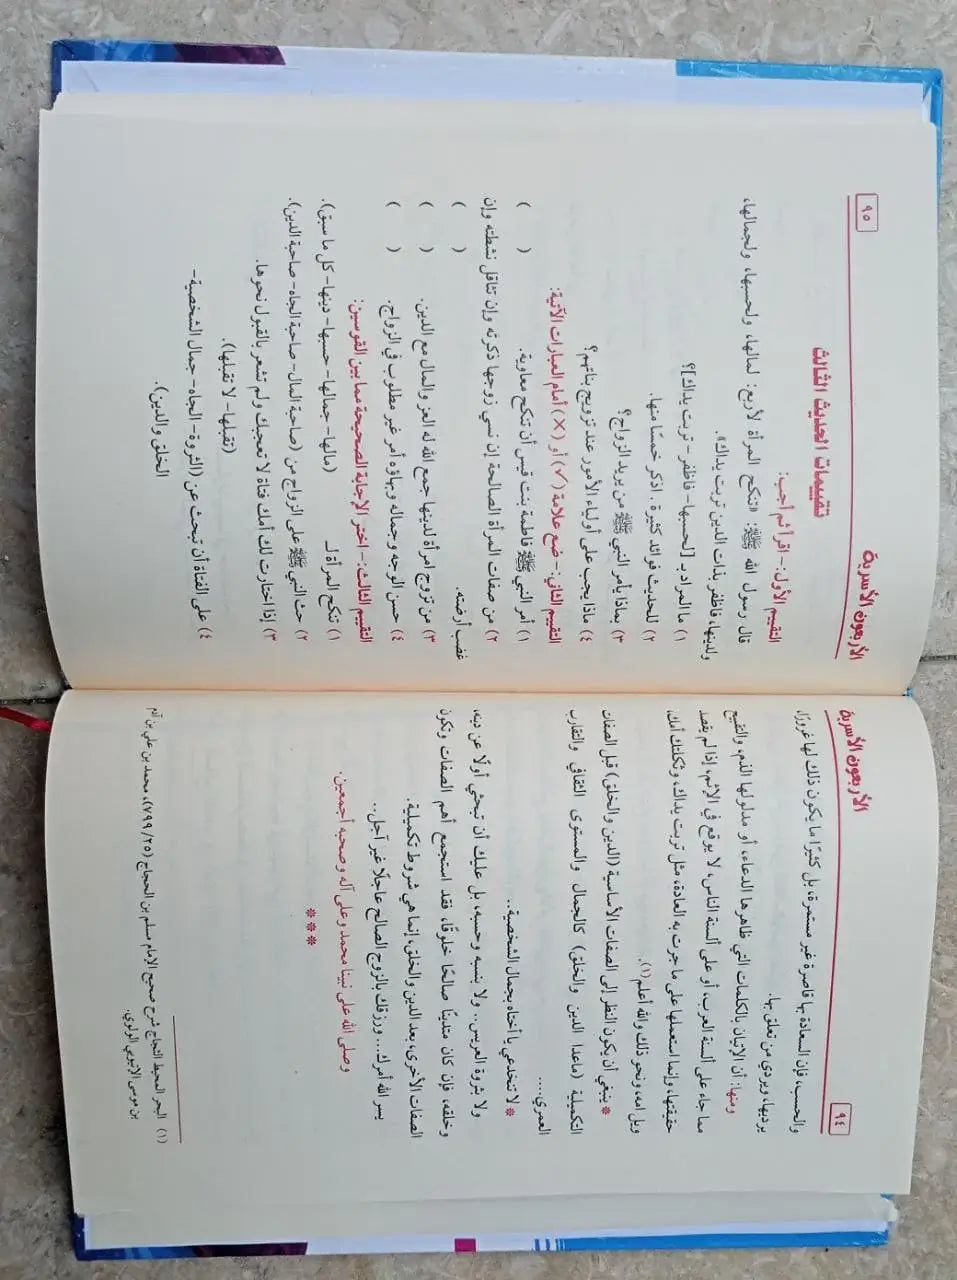 الأربعون الأسرية
٩٤
والحسب، فإن السعادة بها قاصرة غير مستمرة، بل كثيرًا ما يكون ذلك لها غرورًا،
يرديها، ويردي من تعلق بها.
ومنها: أن الإتيان بالكلمات التي ظاهرها الدعاء، أو مدلولها الذم، والتقبيح
مما جاء على ألسنة العرب، أو على ألسنة الناس، لا يوقع في الإثم، إذا لم يقصد
حقيقتها، وإنما استعملها على ما جرت به العادة، مثل تربت يداك، وثكلتك أمك،
ويل امه، ونحو ذلك والله أعلم(١).
* ينبغي أن يكون النظر إلى الصفات الأساسية (الدين والخلق) قبل الصفات
التكميلية (ماعدا الدين والخلق) كالجمال والمستوى الثقافي والتقارب
العمري....
* لا تنخدعي يا أختاه بجمال الشخصية..
ولا بثروة العريس.. ولا بنسبه وحسبه، بل عليك أن تبحثي أولًا عن دينه،
وخلقه، فإن كان متدينًا صالحًا خلوقًا، فقد استجمع أهم الصفات وتكون
الصفات الأخرى، بعد الدين والخلق، إنما هي شروط تكميلية.
يسر الله أمرك... ورزقك بالزوج الصالح عاجلًا غير آجل..
وصلى الله على نبينا محمد وعلى آله وصحبه أجمعين.
***
(١) البحر المحيط الثجاج شرح صحيح الإمام مسلم بن الحجاج (٧٩٩/٢٥)، محمد بن علي بن آدم
بن موسى الإتيوبي الولوي.
الأربعون الأسرية
٩٥
تقييمات الحديث الثالث
التقييم الأول:- اقرأ ثم أجب:
قال رسول الله ﷺ: «تنكح المرأة لأربع: لمالها، ولحسبها، ولجمالها،
ولدينها، فاظفر بذات الدين تربت يداك».
١) ما المراد بـ [لحسبها- فاظفر- تربت يداك]؟
٢) للحديث فوائد كثيرة. اذكر خمسًا منها.
٣) بماذا يأمر النبي ﷺ من يريد الزواج؟
٤) ماذا يجب على أولياء الأمور عند تزويج بناتهم؟
التقييم الثاني:- ضع علامة (✓) أو (×) أمام العبارات الآتية:
١) أمر النبي ﷺ فاطمة بنت قيس أن تنكح معاوية. ( )
٢) من صفات المرأة الصالحة إن نسي زوجها ذكرته وإن تثاقل نشطته وإن
غضب أرضته. ( )
٣) من تزوج امرأة لدينها جمع الله له العز والمال مع الدين. ( )
٤) حسن الوجه وجماله وبهاؤه أمر غير مطلوب في الزواج. ( )
التقييم الثالث:- اختر الإجابة الصحيحة مما بين القوسين:
١) تنكح المرأة لـ (مالها- جمالها- حسبها- دينها- كل ما سبق).
٢) حث النبي ﷺ على الزواج من (صاحبة المال- صاحبة الجاه- صاحبة الدين).
٣) إذا اختارت لك أمك فتاة لا تعجبك ولم تشعر بالقبول نحوها.
(تقبلها- لا تقبلها).
٤) على الفتاة أن تبحث عن (الثروة- الجاه- جمال الشخصية-
الخلق والدين).